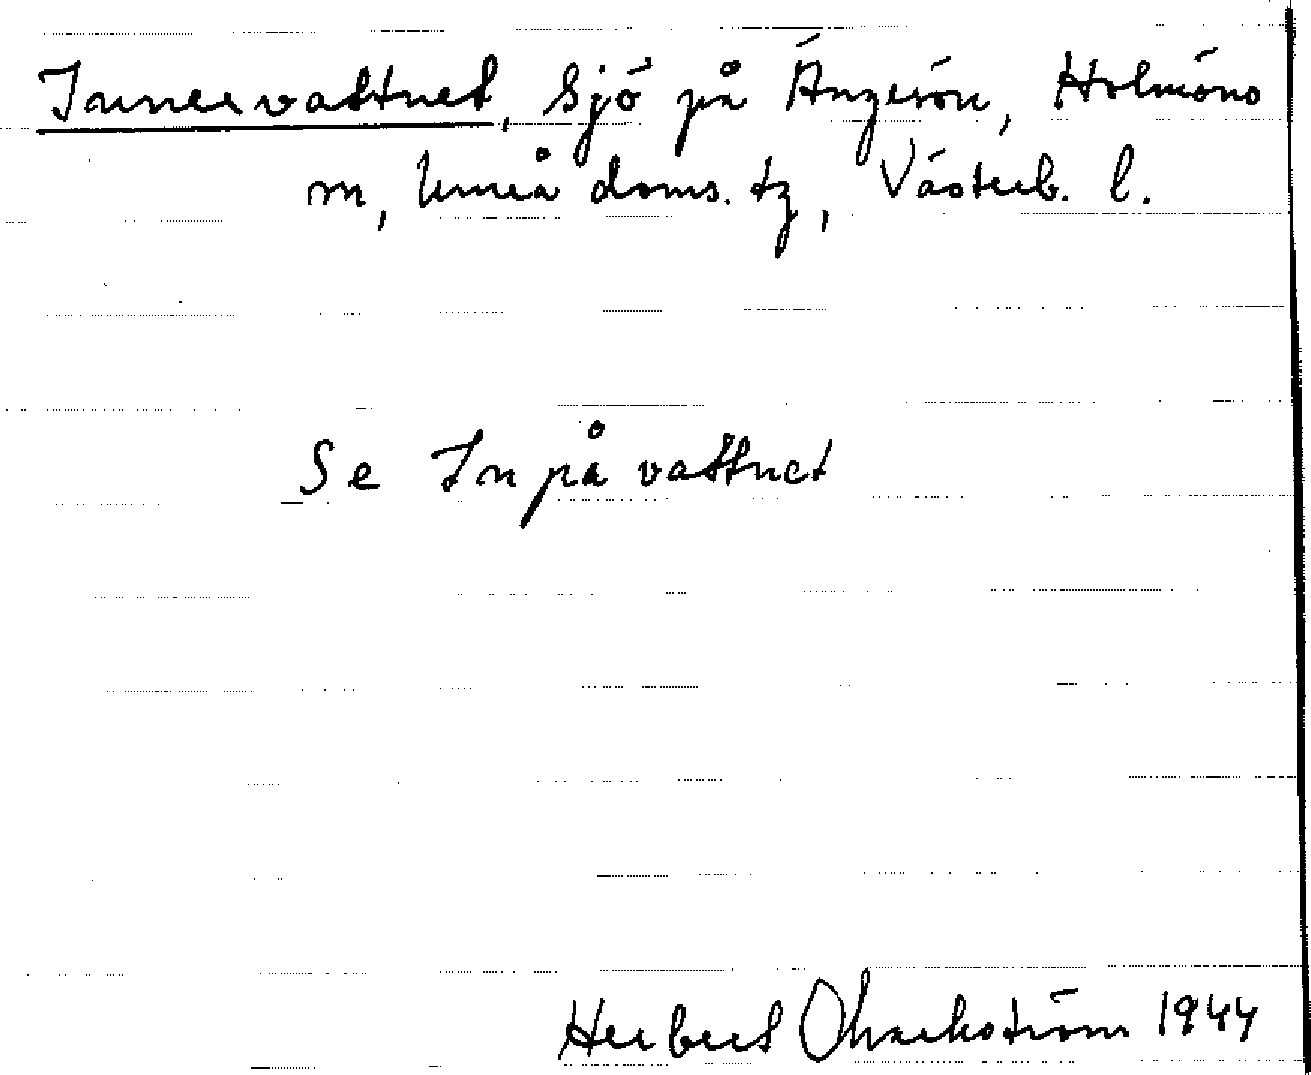 Innervattnet, sjö på Ängesön, Holmöns
m, Umeå doms. tg, Västerb. l.
Se Inpå vattnet
Herbert 1944